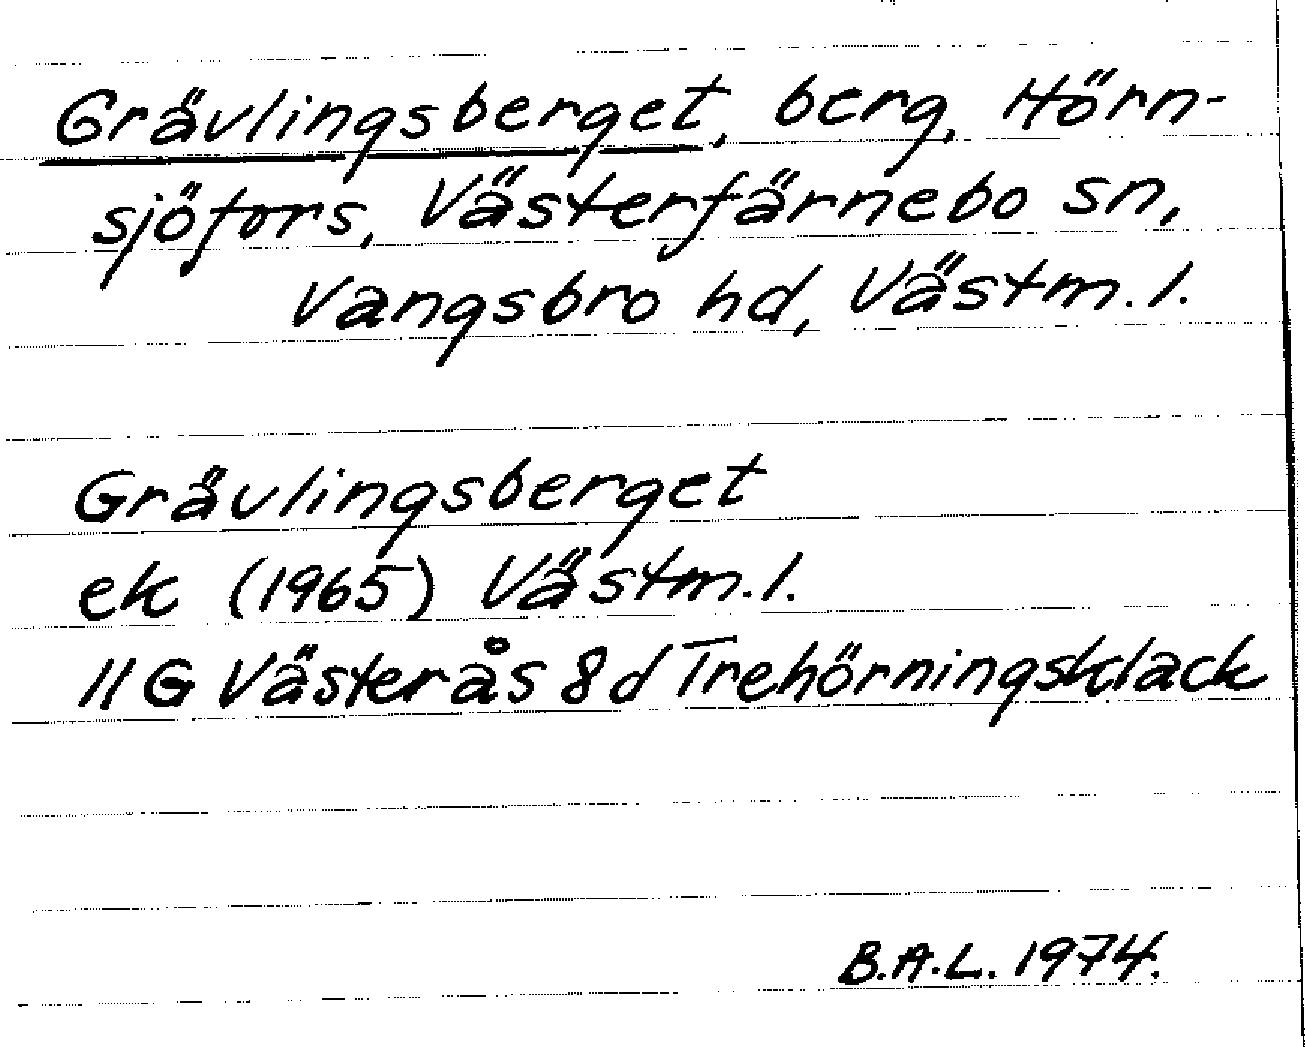 Grävlingsberget, berg, Hörn-
sjöfors, Västerfärnebo sn,
Vangsbro hd, Västm. l.
Grävlingsberget
ek (1965) Västm. l.
11G Västerås 8d Trehörningsklack
B.A.L. 1974.